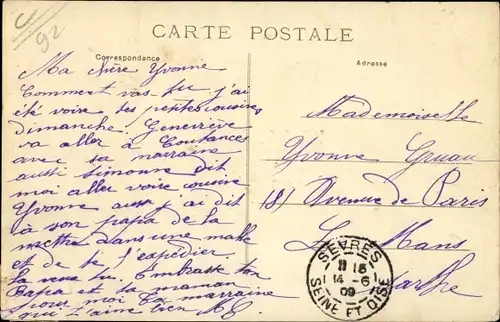 4/92
CARTE POSTALE
Correspondance
Adresse
Ma chère Yvonne
Comment vas tu j'ai
été voire des petites cousines
dimanche. Geneviève
va aller à Coutances
avec sa marraine
aussi Simonne dit
moi aller voire cousine
Yvonne aussi j'ai dit
à son papa de la
mettre dans une malle
et de te l'expédier.
Embrasse ton
Papa et ta maman
pour moi ta marraine
qui t'aime bien
Mademoiselle
Yvonne Gruau
181 Avenue de Paris
Le Mans
Sarthe
SEVRES
14 -6
09
SEINE ET OISE